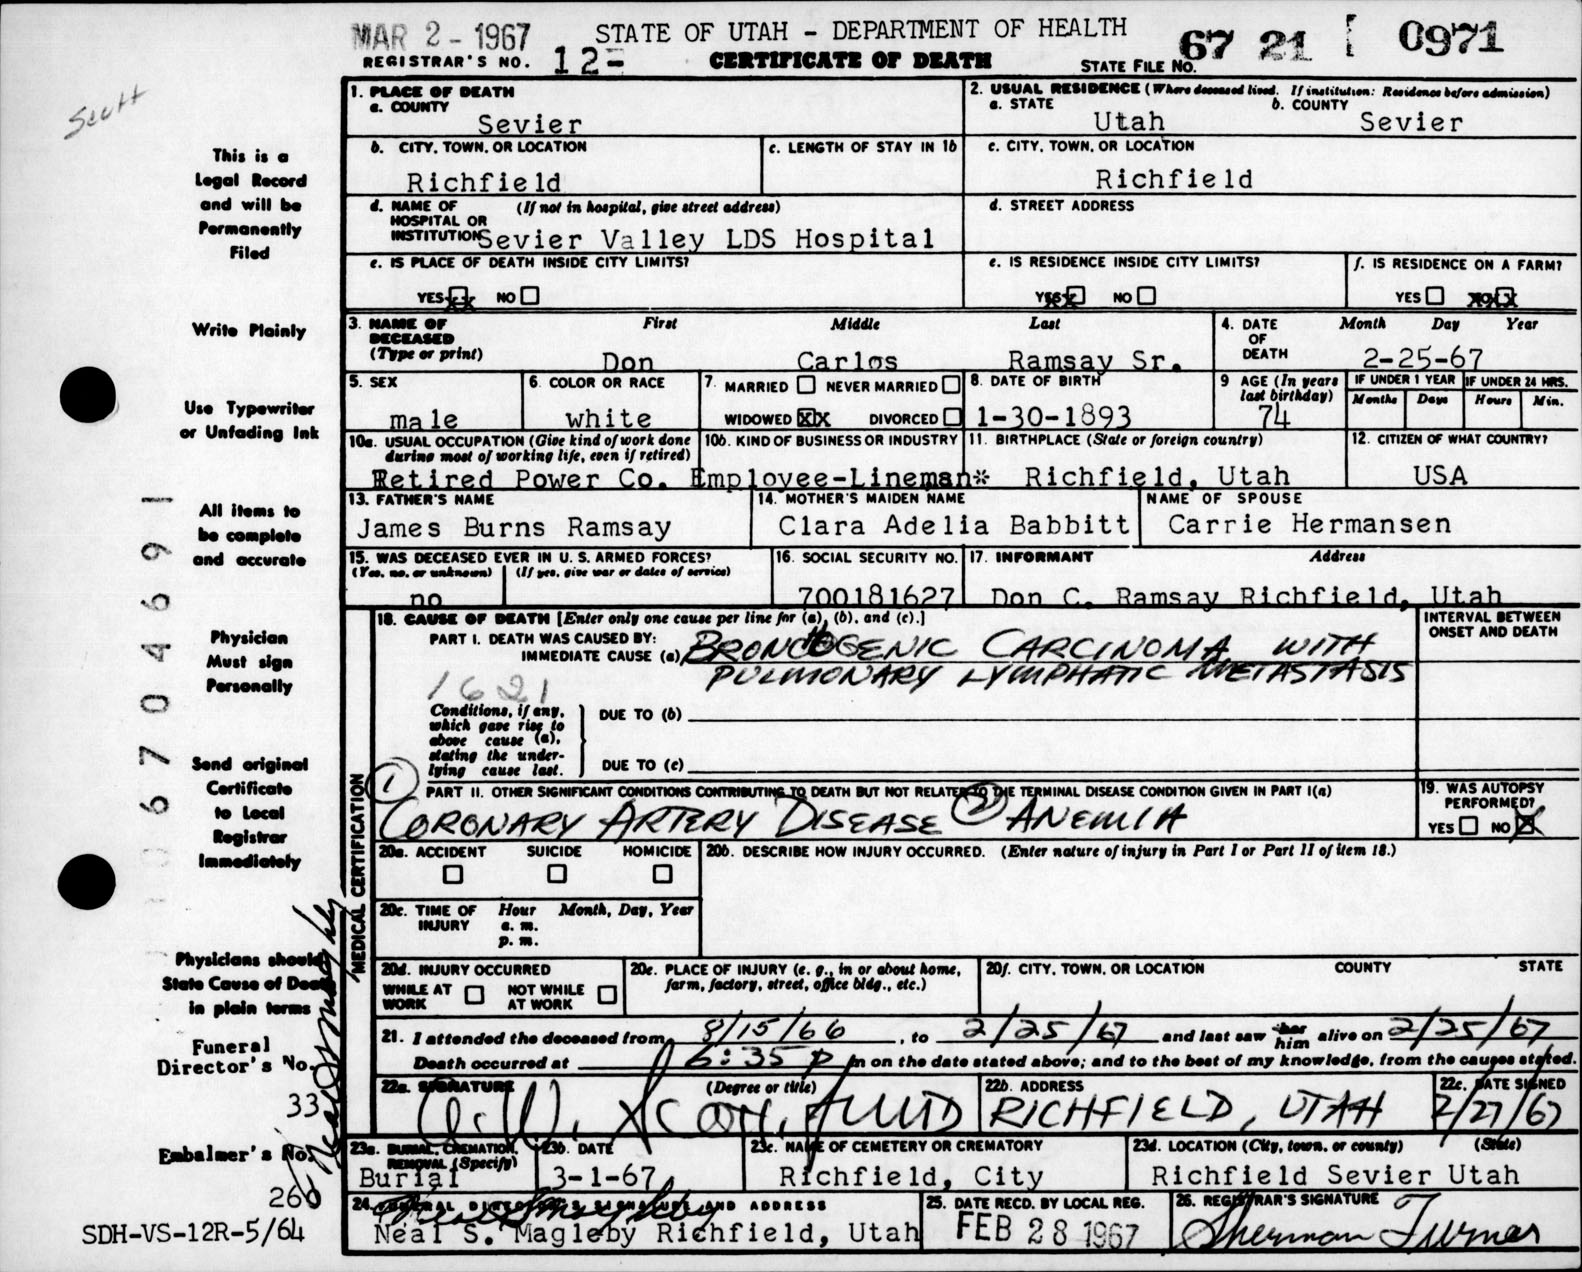 MAR 2 - 1967 STATE OF UTAH - DEPARTMENT OF HEALTH 67 21 0971
REGISTRAR'S NO. 12- CERTIFICATE OF DEATH STATE FILE NO.
Scott
This is a
Legal Record
and will be
Permanently
Filed
Write Plainly
Use Typewriter
or Unfading Ink
All items to
be complete
and accurate
Physician
Must sign
Personally
Send original
Certificate
to Local
Registrar
Immediately
Physicians should
State Cause of Death
in plain terms
Funeral
Director's No.
33
Embalmer's No.
260
SDH-VS-12R-5/64
6704691
1. PLACE OF DEATH
a. COUNTY
Sevier
2. USUAL RESIDENCE (Where deceased lived. If institution: Residence before admission)
a. STATE b. COUNTY
Utah Sevier
b. CITY, TOWN, OR LOCATION
Richfield
c. LENGTH OF STAY IN 1b
c. CITY, TOWN, OR LOCATION
Richfield
d. NAME OF (If not in hospital, give street address)
HOSPITAL OR
INSTITUTION Sevier Valley LDS Hospital
d. STREET ADDRESS
e. IS PLACE OF DEATH INSIDE CITY LIMITS?
YES xx NO
e. IS RESIDENCE INSIDE CITY LIMITS?
YES NO
f. IS RESIDENCE ON A FARM?
YES NO
3. NAME OF First Middle Last
DECEASED
(Type or print) Don Carlos Ramsay Sr.
4. DATE Month Day Year
OF
DEATH 2-25-67
5. SEX
male
6. COLOR OR RACE
white
7. MARRIED NEVER MARRIED
WIDOWED XX DIVORCED
8. DATE OF BIRTH
1-30-1893
9 AGE (In years
last birthday)
74
IF UNDER 1 YEAR IF UNDER 24 HRS.
Months Days Hours Min.
10a. USUAL OCCUPATION (Give kind of work done
during most of working life, even if retired)
10b. KIND OF BUSINESS OR INDUSTRY
Retired Power Co. Employee-Lineman*
11. BIRTHPLACE (State or foreign country)
Richfield, Utah
12. CITIZEN OF WHAT COUNTRY?
USA
13. FATHER'S NAME
James Burns Ramsay
14. MOTHER'S MAIDEN NAME
Clara Adelia Babbitt
NAME OF SPOUSE
Carrie Hermansen
15. WAS DECEASED EVER IN U. S. ARMED FORCES?
(Yes, no, or unknown) (If yes, give war or dates of service)
no
16. SOCIAL SECURITY NO.
700181627
17. INFORMANT Address
Don C. Ramsay Richfield, Utah
MEDICAL CERTIFICATION
18. CAUSE OF DEATH [Enter only one cause per line for (a), (b), and (c).]
INTERVAL BETWEEN
ONSET AND DEATH
PART I. DEATH WAS CAUSED BY:
IMMEDIATE CAUSE (a) BRONCHOGENIC CARCINOMA WITH
PULMONARY LYMPHATIC METASTASIS
1621
Conditions, if any,
which gave rise to
above cause (a),
stating the under-
lying cause last.
DUE TO (b)
DUE TO (c)
PART II. OTHER SIGNIFICANT CONDITIONS CONTRIBUTING TO DEATH BUT NOT RELATED TO THE TERMINAL DISEASE CONDITION GIVEN IN PART I(a)
① CORONARY ARTERY DISEASE ② ANEMIA
19. WAS AUTOPSY
PERFORMED?
YES NO X
20a. ACCIDENT SUICIDE HOMICIDE
20b. DESCRIBE HOW INJURY OCCURRED. (Enter nature of injury in Part I or Part II of item 18.)
20c. TIME OF Hour Month, Day, Year
INJURY a. m.
p. m.
20d. INJURY OCCURRED
WHILE AT NOT WHILE
WORK AT WORK
20e. PLACE OF INJURY (e. g., in or about home,
farm, factory, street, office bldg., etc.)
20f. CITY, TOWN, OR LOCATION COUNTY STATE
21. I attended the deceased from 8/15/66, to 2/25/67 and last saw her him alive on 2/25/67
Death occurred at 6:35 P m on the date stated above; and to the best of my knowledge, from the causes stated.
22a. SIGNATURE (Degree or title)
22b. ADDRESS
RICHFIELD, UTAH
22c. DATE SIGNED
2/27/67
23a. BURIAL, CREMATION,
REMOVAL (Specify)
Burial
23b. DATE
3-1-67
23c. NAME OF CEMETERY OR CREMATORY
Richfield, City
23d. LOCATION (City, town, or county) (State)
Richfield Sevier Utah
24. FUNERAL DIRECTOR'S SIGNATURE AND ADDRESS
Neal S. Magleby Richfield, Utah
25. DATE RECD. BY LOCAL REG.
FEB 28 1967
26. REGISTRAR'S SIGNATURE
Sherman Turner
Neal S Magleby